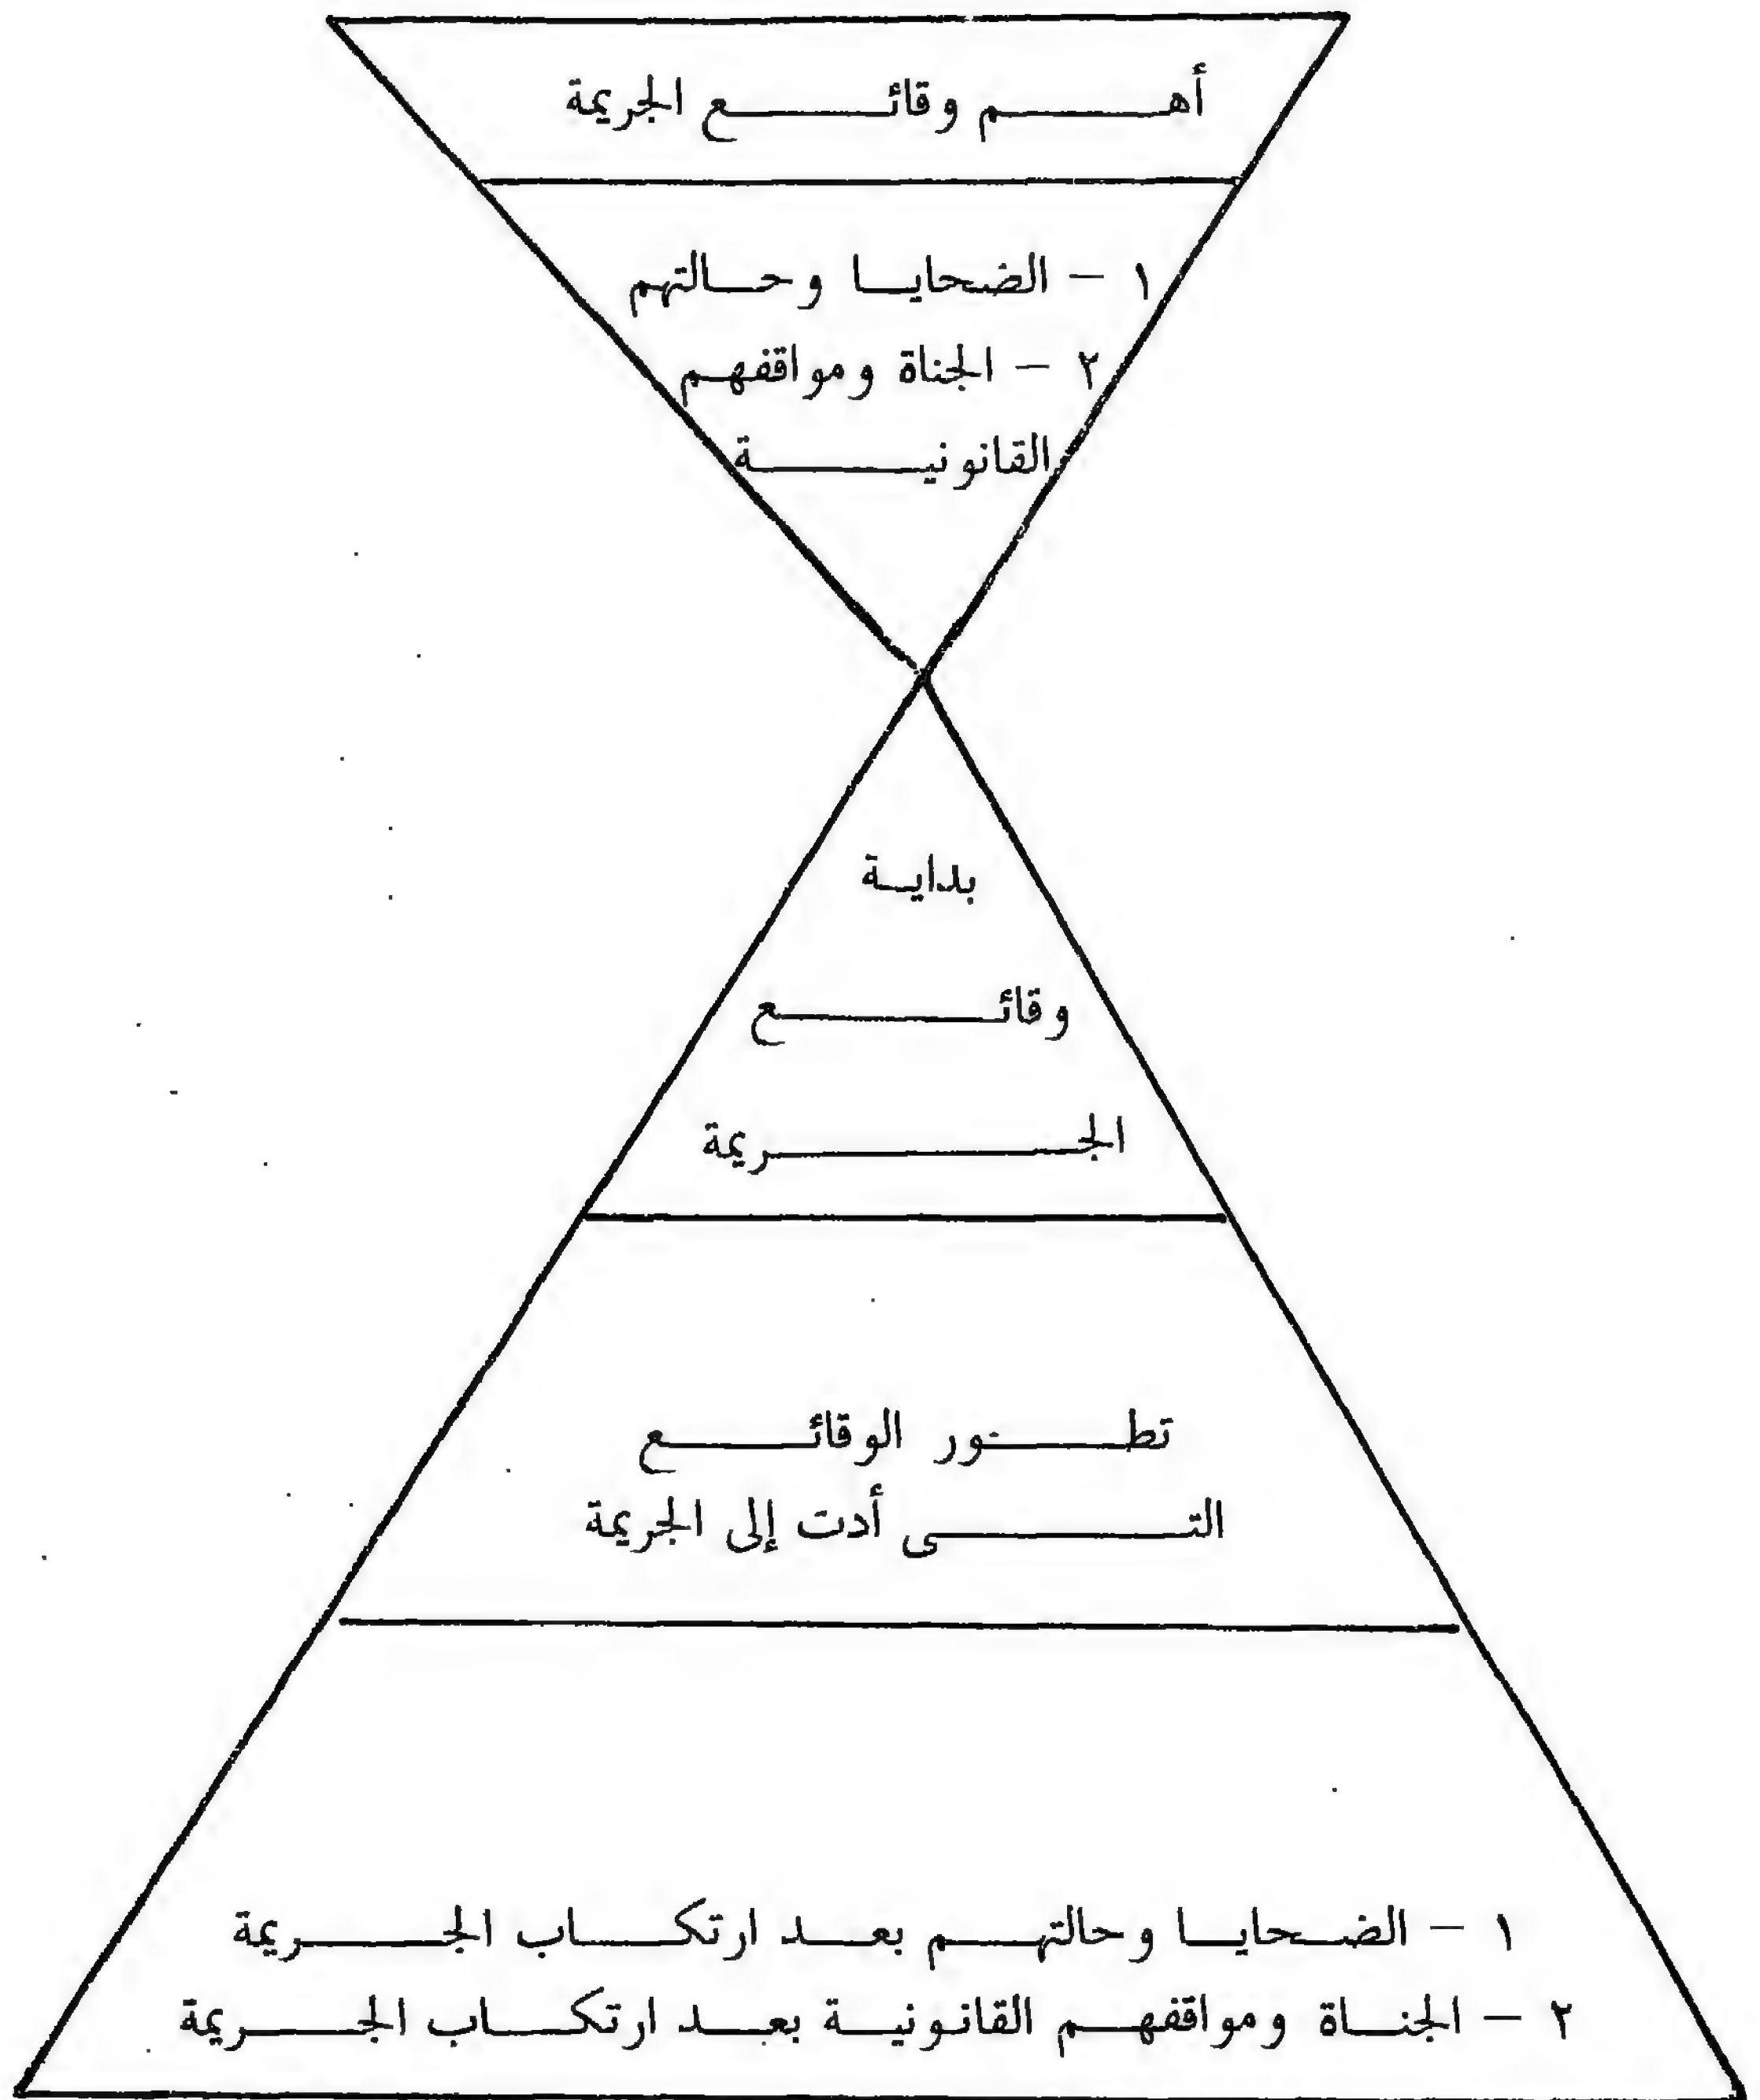 أهم وقائع الجريمة
١ – الضحايا وحالتهم
٢ – الجناة ومواقفهم
القانونية
بداية
وقائع
الجريمة
تطور الوقائع
التى أدت إلى الجريمة
١ – الضحايا وحالتهم بعد ارتكاب الجريمة
٢ – الجناة ومواقفهم القانونية بعد ارتكاب الجريمة